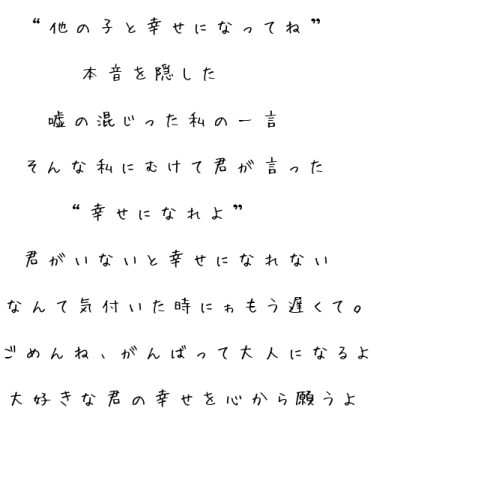 “他の子と幸せになってね”
本音を隠した
嘘の混じった私の一言
そんな私にむけて君が言った
“幸せになれよ”
君がいないと幸せになれない
なんて気付いた時にゎもう遅くて。
ごめんね、がんばって大人になるよ
大好きな君の幸せを心から願うよ